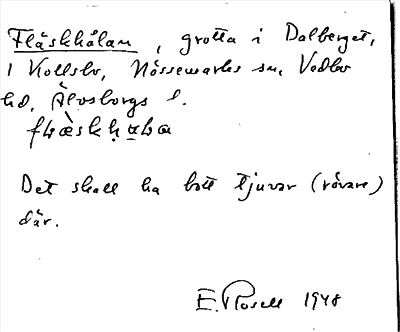 Fläskhålan, grotta i Dalberget,
i Kollsbo, Nössemarks sn, Vedbo
hd, Älvsborgs l.
Det skall ha bott tjuvar (rövare)
där.
E. Rosell 1948